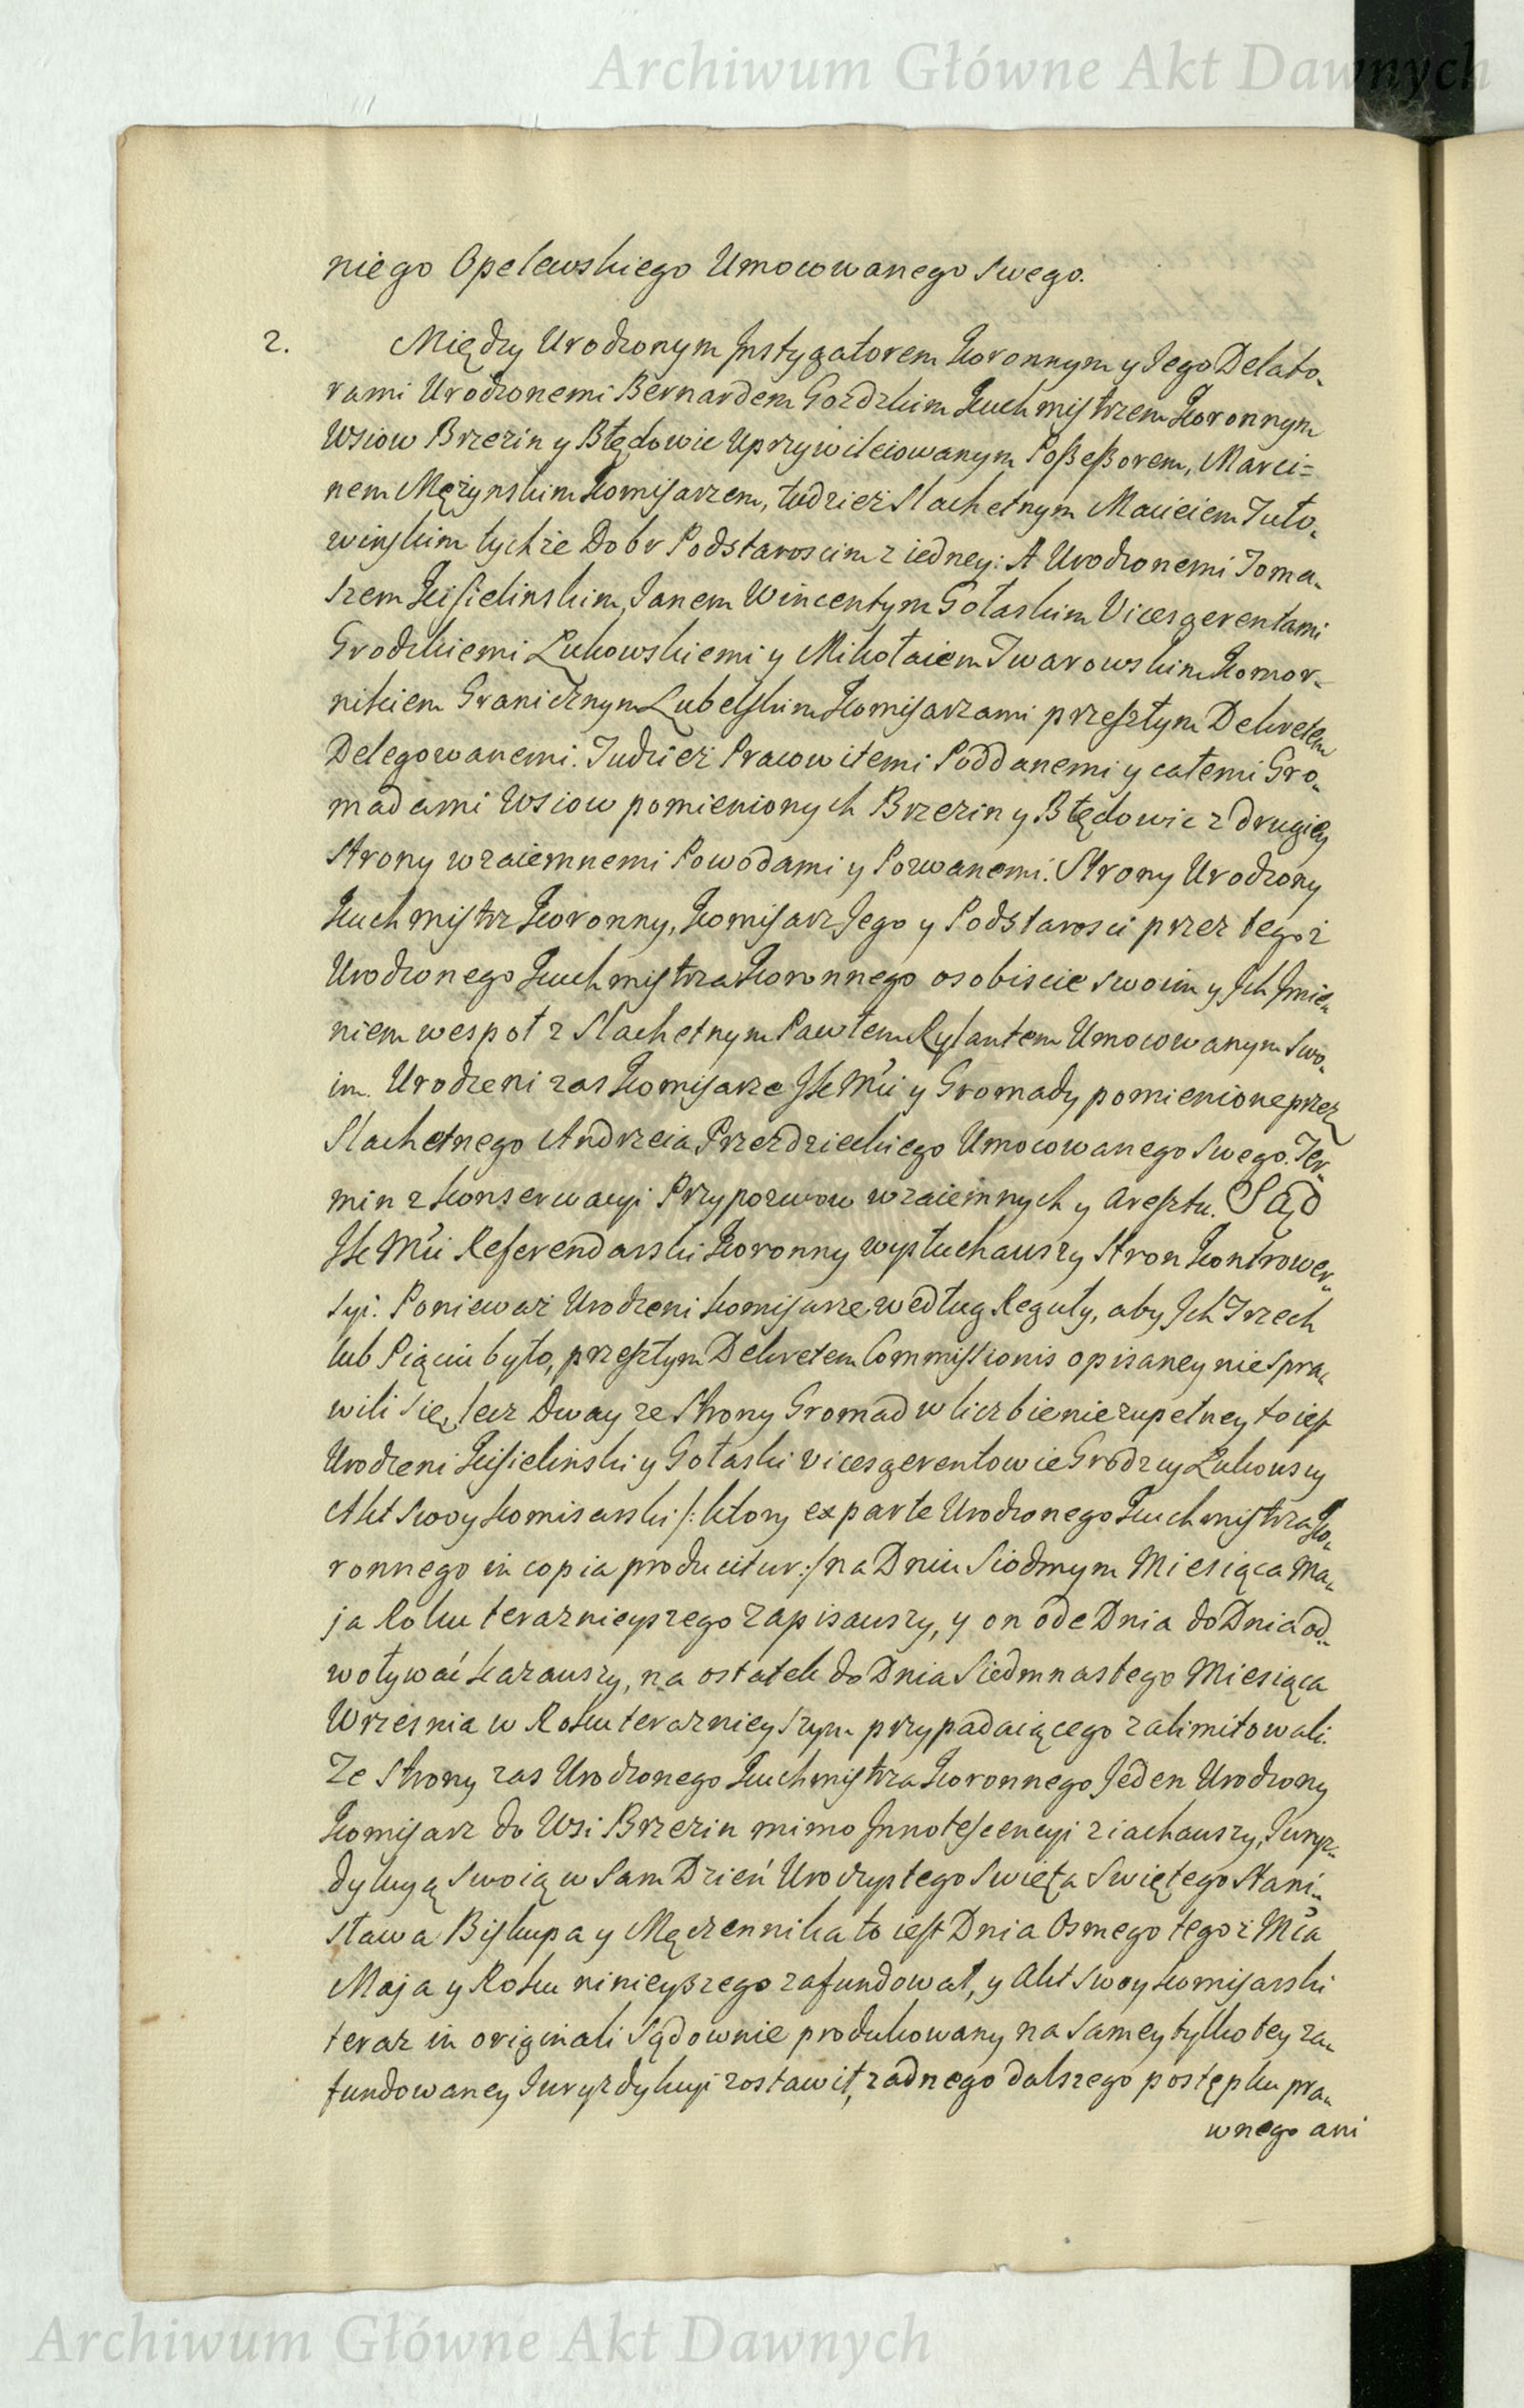 Archiwum Główne Akt Dawnych
niego Opelewskiego Umocowanego Swego.
2. Między Urodzonym Instygatorem Koronnym y Jego Delato-
rami Urodzonemi Bernardem Gozdzkim Kuchmistrzem Koronnym
Wsiow Brzezin y Błędowic Uprzywileiowanym Poßeßorem, Marci=
nem Mężynskim Komisarzem, tudziesz Slachetnym Macieiem Tuto-
winskim tychże Dobr Podstaroscim z iedney: A Urodzonemi Toma-
szem Kisielinskim, Janem Wincentym Gołaskim Vicesgerentami
Grodzkiemi Łukowskiemi y Mikołaiem Twarowskim Komor-
nikiem Granicznym Lubelskim Komisarzami przeszłym Dekretem
Delegowanemi. Tudzież Pracowitemi Poddanemi y całemi Gro-
madami Wsiow pomienionych Brzezin y Błędowic z drugiey
Strony wzaiemnemi Powodami y Pozwanemi. Strony Urodzony
Kuchmistrz Koronny, Komisarz Jego y Podstarosci przez tegoż
Urodzonego Kuchmistrza Koronnego osobiscie swoim y Ich Imie-
niem wespoł z Slachetnym Pawłem Rylantem Umocowanym Swo-
im. Urodzeni zas Komisarze JK Mci y Gromady pomienione przez
Slachetnego Andrzeia Przezdzieckiego Umocowanego Swego. Ter-
min z konserwacyi Przypozwow wzaiemnych y Aresztu. Sąd
JK Mci Referendarski Koronny wysłuchawszy Stron Kontrower-
syi. Poniewaz Urodzeni Komisarze według Reguły, aby Ich Trzech
lub Pięciu było, przeszłym Dekretem Commissionis opisaney nie spra-
wili się, lecz Dway ze Strony Gromad w liczbie niezupełney to iest
Urodzeni Kisielinski y Gołaski Vicesgerentowie Grodzcy Łukowscy
Akt Swoy Komisarski /: ktory ex parte Urodzonego Kuchmistrza Ko-
ronnego in copia producitur :/ na Dniu Siodmym Miesiąca Ma-
ja Roku teraznieyszego zapisawszy, y on ode Dnia do Dnia od-
woływać kazawszy, na ostatek do Dnia Siedmnastego Miesiąca
Wrzesnia w Roku teraznieyszym przypadaiącego zalimitowali.
Ze Strony zas Urodzonego Kuchmistrza Koronnego Jeden Urodzony
Komisarz do Wsi Brzezin mimo Innotescencyi ziachawszy, Juryz-
dykcyą Swoią w Sam Dzień Uroczystego Swięta Swiętego Stani-
sława Biskupa y Męczennika to iest Dnia Osmego tegoż Mca
Maja y Roku ninieyszego zafundował, y Akt Swoy Komisarski
teraz in originali Sądownie produkowany na Samey tylko tey za-
fundowaney Juryzdykcyi zostawił, zadnego dalszego postępku pra-
wnego ani
Archiwum Główne Akt Dawnych